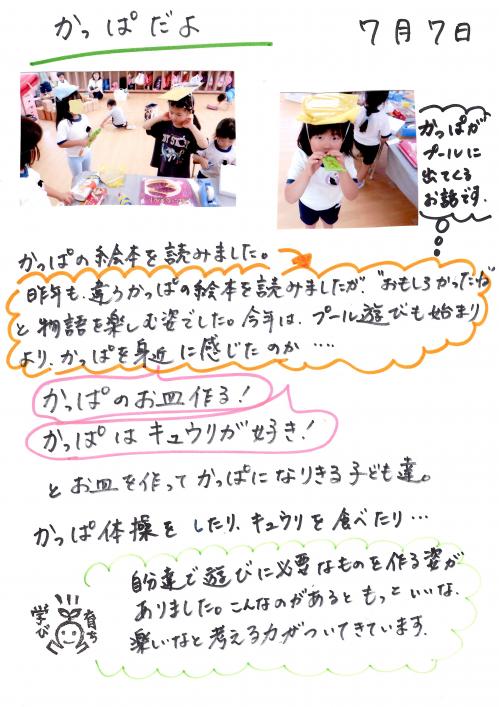 かっぱだよ
7月7日
かっぱが
プールに
出てくる
お話です。
かっぱの絵本を読みました。
昨年も、違うかっぱの絵本を読みましたが、"おもしろかったね"
と物語を楽しむ姿でした。今年は、プール遊びも始まり
より、かっぱを身近に感じたのか…
かっぱのお皿作る!
かっぱはキュウリが好き!
とお皿を作ってかっぱになりきる子ども達。
かっぱ体操をしたり、キュウリを食べたり…
自分達で遊びに必要なものを作る姿が
ありました。こんなのがあるともっといいな、
楽しいなと考える力がついてきています。
学び
育ち